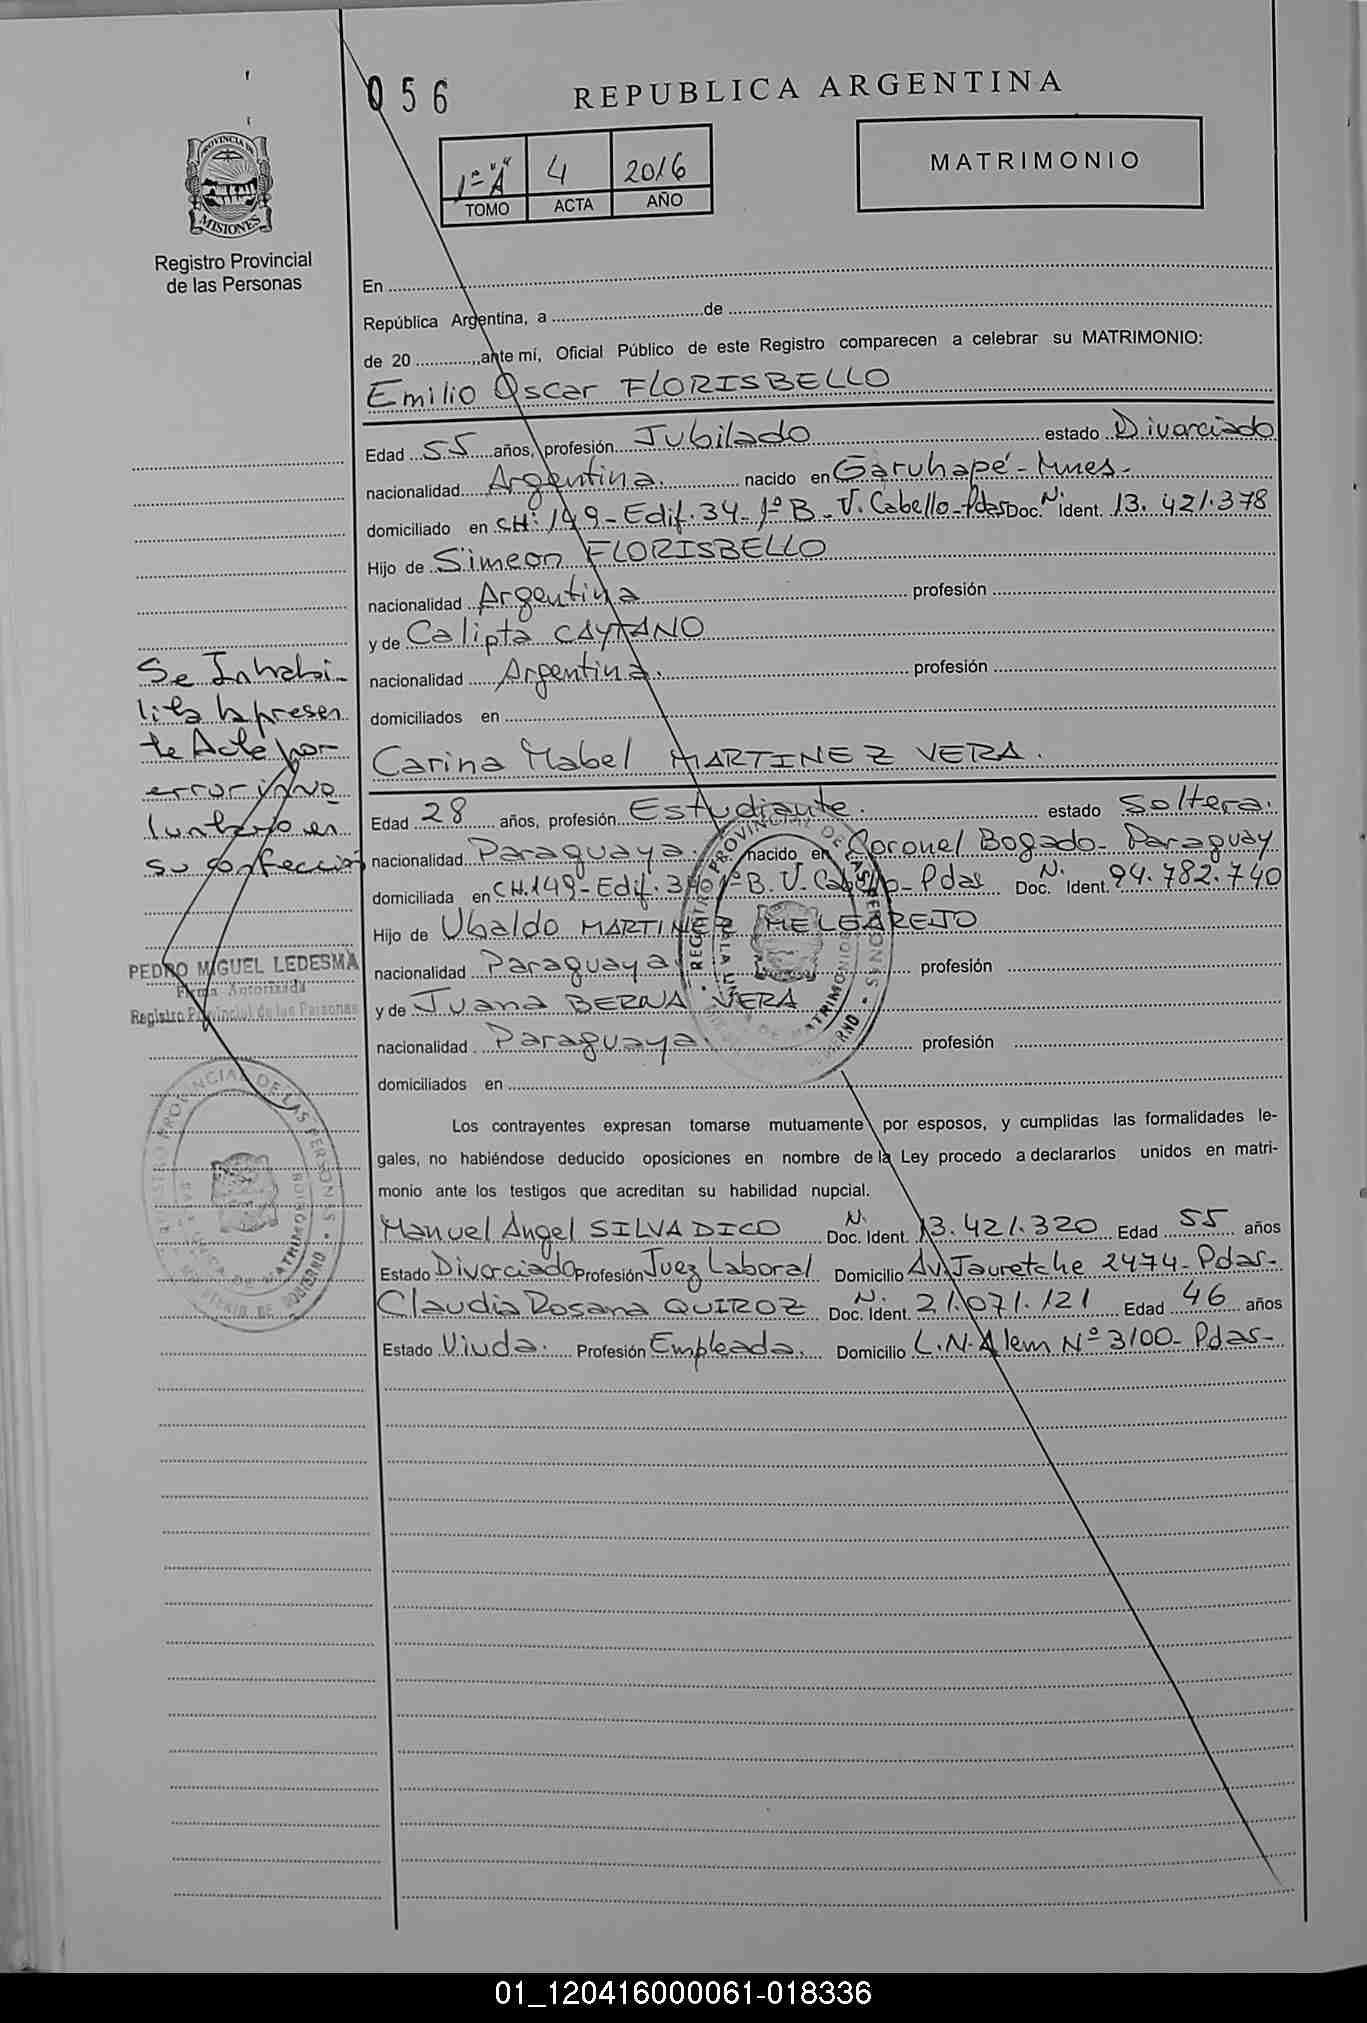 056
REPUBLICA ARGENTINA
1º "A" 4 2016
TOMO ACTA AÑO
MATRIMONIO
PROVINCIA DE
MISIONES
Registro Provincial
de las Personas
En
República Argentina, a de
de 20 ante mí, Oficial Público de este Registro comparecen a celebrar su MATRIMONIO:
Emilio Oscar FLORISBELLO
Edad 55 años, profesión Jubilado estado Divorciado
nacionalidad Argentina. nacido en Garuhapé-Mnes-
domiciliado en CH: 149-Edif. 34-1º B-V. Cabello-Pdas Doc. N. Ident. 13.421.378
Hijo de Simeon FLORISBELLO
nacionalidad Argentina profesión
y de Calipta CAYTANO
nacionalidad Argentina. profesión
domiciliados en
Carina Mabel MARTINEZ VERA.
Edad 28 años, profesión Estudiante. estado Soltera.
nacionalidad Paraguaya. nacido en Coronel Bogado-Paraguay
domiciliada en CH.149-Edif. 34 1º B. V. Cabello-Pdas Doc. N. Ident. 94.782.740
Hijo de Ubaldo MARTINEZ MELGAREJO
nacionalidad Paraguaya profesión
y de Juana BERNA VERA
nacionalidad Paraguaya. profesión
domiciliados en
Se Inhabi-
lita la presen
te Acta por
error invo
luntario en
su confección
PEDRO MIGUEL LEDESMA
Firma Autorizada
Registro Provincial de las Personas
Los contrayentes expresan tomarse mutuamente por esposos, y cumplidas las formalidades le-
gales, no habiéndose deducido oposiciones en nombre de la Ley procedo a declararlos unidos en matri-
monio ante los testigos que acreditan su habilidad nupcial.
Manuel Angel SILVA DICO Doc. N. Ident. 13.421.320 Edad 55 años
Estado Divorciado Profesión Juez Laboral Domicilio Av. Jauretche 2474-Pdas-
Claudia Rosana QUIROZ Doc. N. Ident. 21.071.121 Edad 46 años
Estado Viuda. Profesión Empleada. Domicilio L.N. Alem Nº 3100-Pdas-
01_120416000061-018336